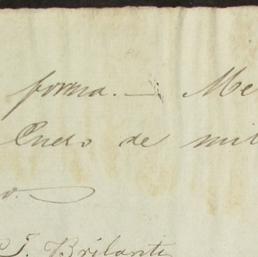 forma. — Me
Enero de mil
o.
J. Brilanti